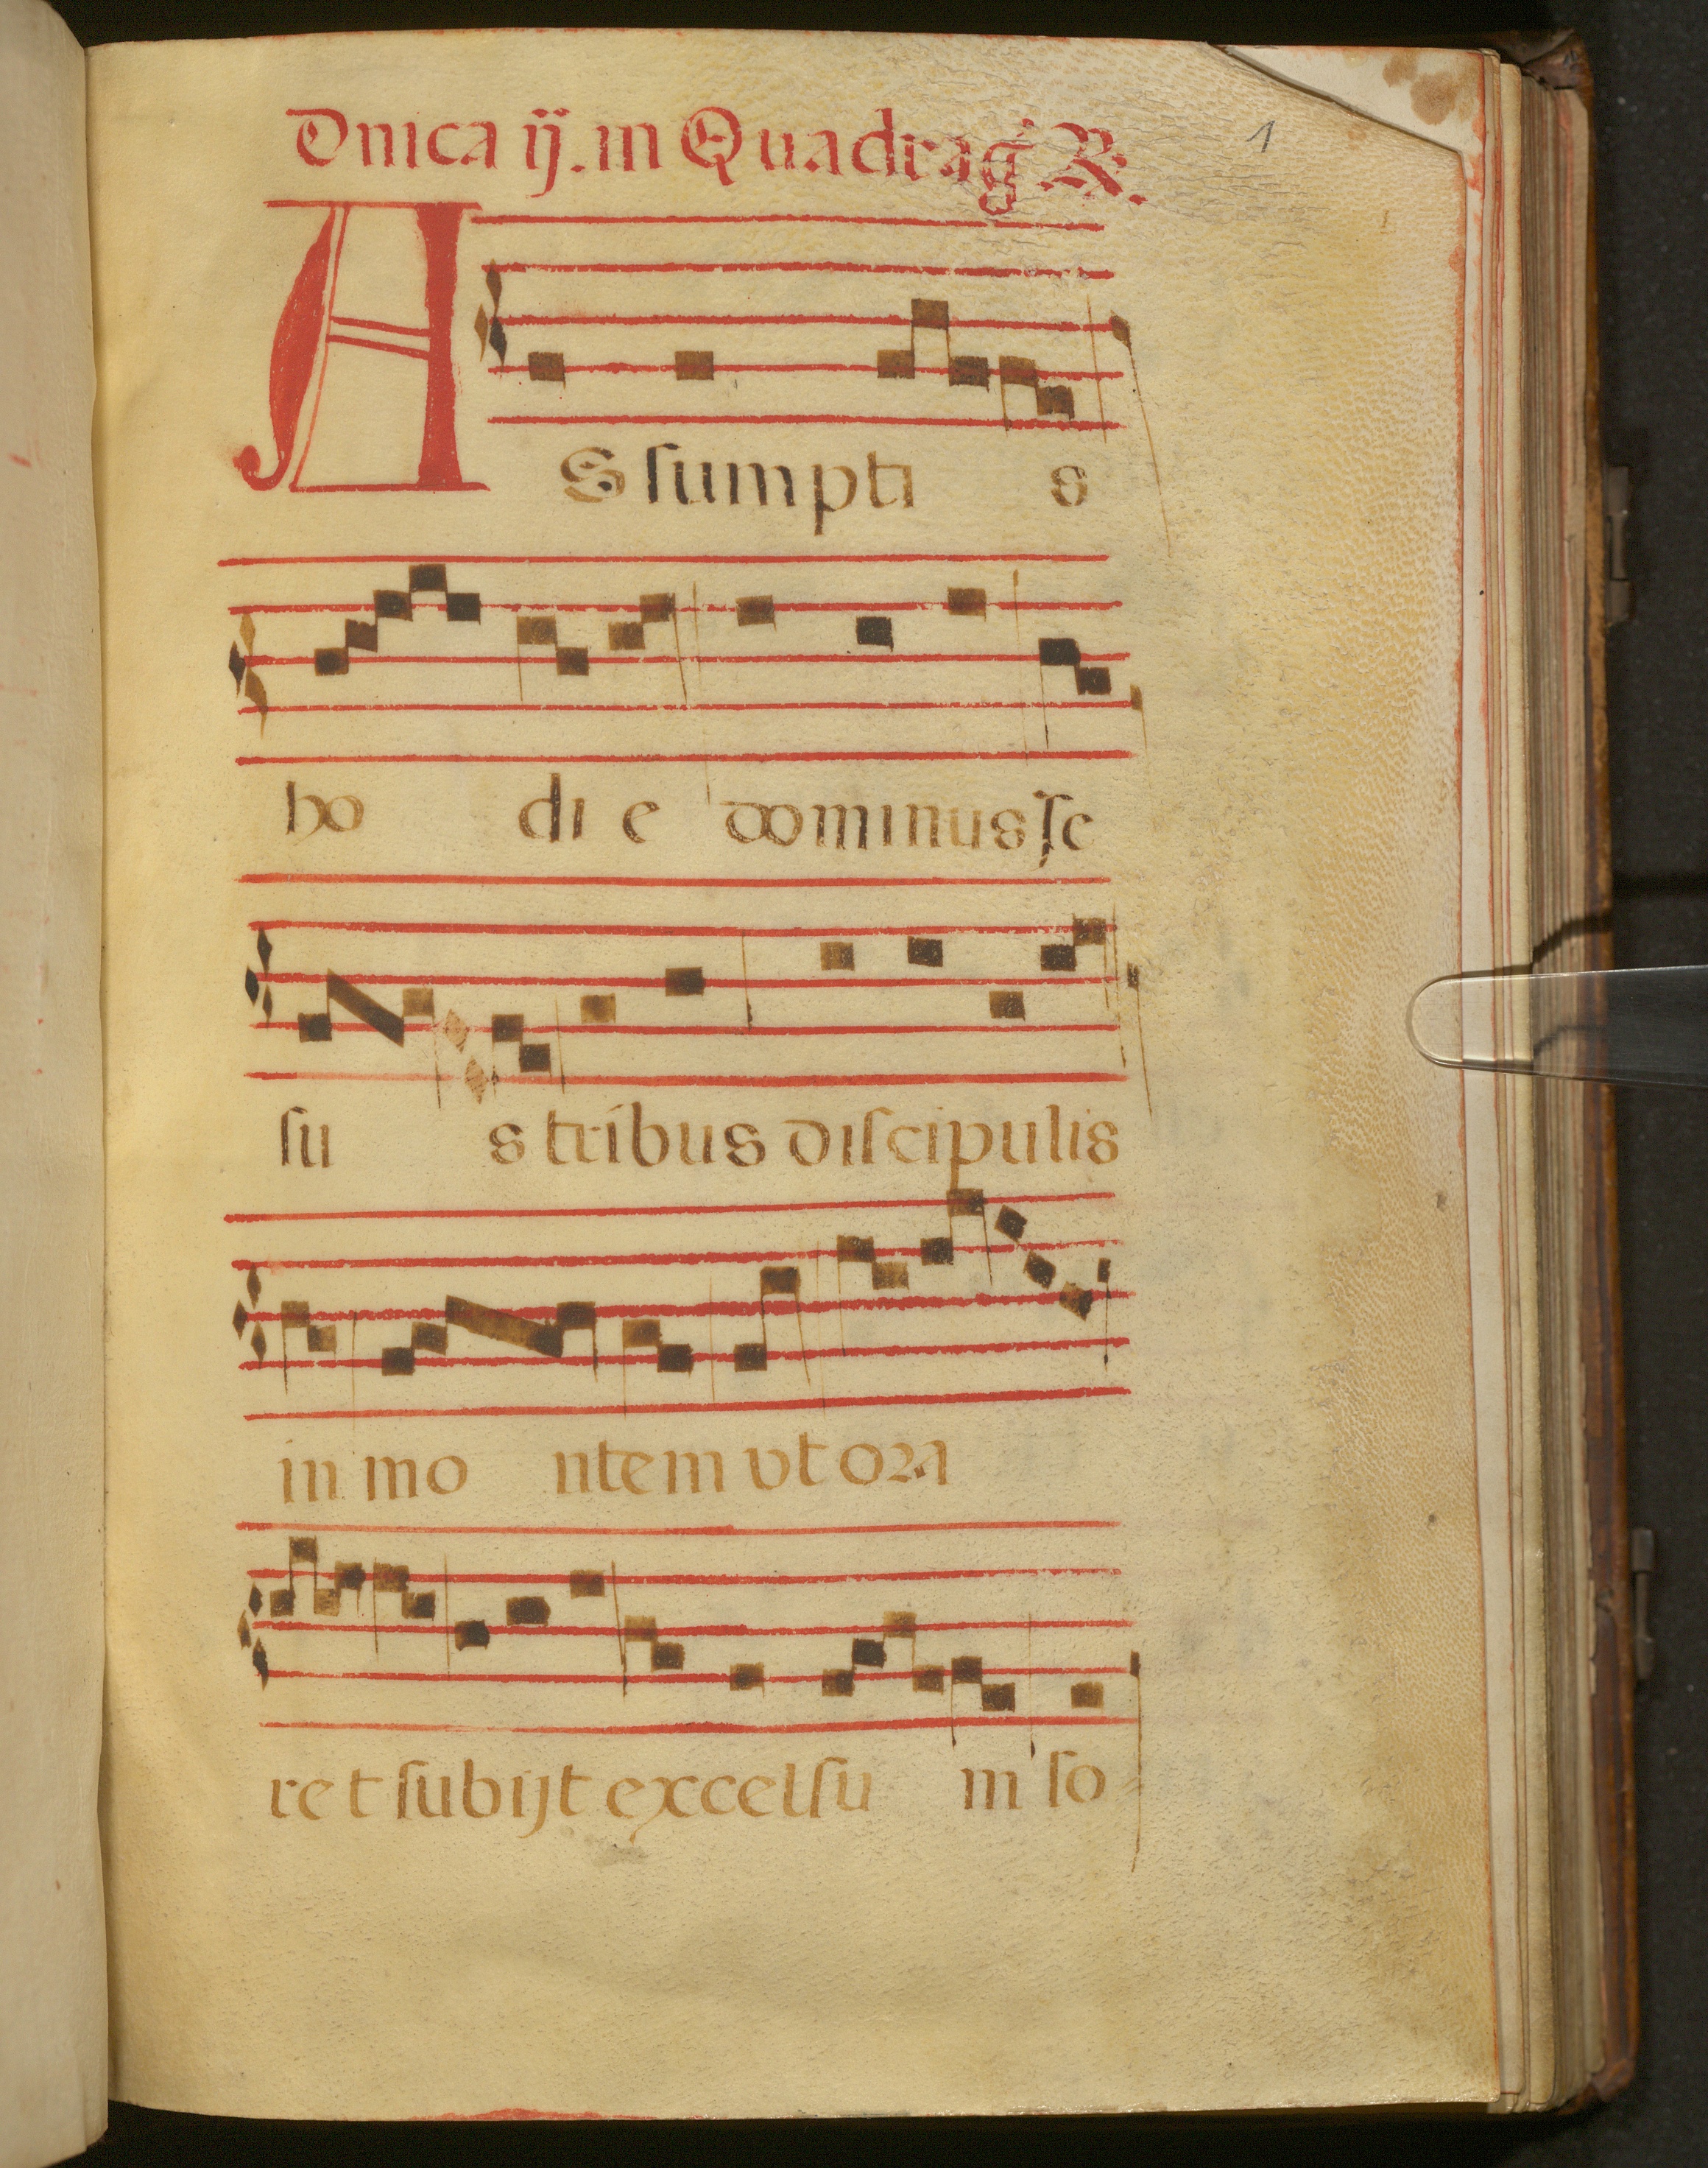 Dnica ij. in Quadrag ℟.
1
ASsumpti s
ho di e dominus Je
su s tribus discipulis
in mo ntem vt ora
ret subijt excelsu m so